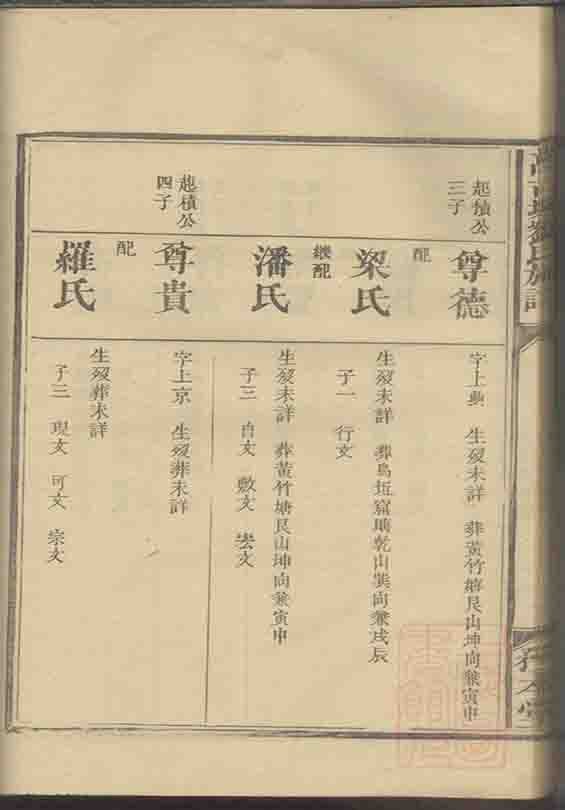 起積公
三子
尊德
字上勳 生歿未詳 葬黃竹塘艮山坤向兼寅申
配
梁氏
生歿未詳 葬烏垣窩壙乾山巽向兼戌辰
子一 行文
繼配
潘氏
生歿未詳 葬黃竹塘艮山坤向兼寅申
子三 自文 敷文 宏文
起積公
四子
尊貴
字上京 生歿葬未詳
配
羅氏
生歿葬未詳
子三 現文 可文 宗文